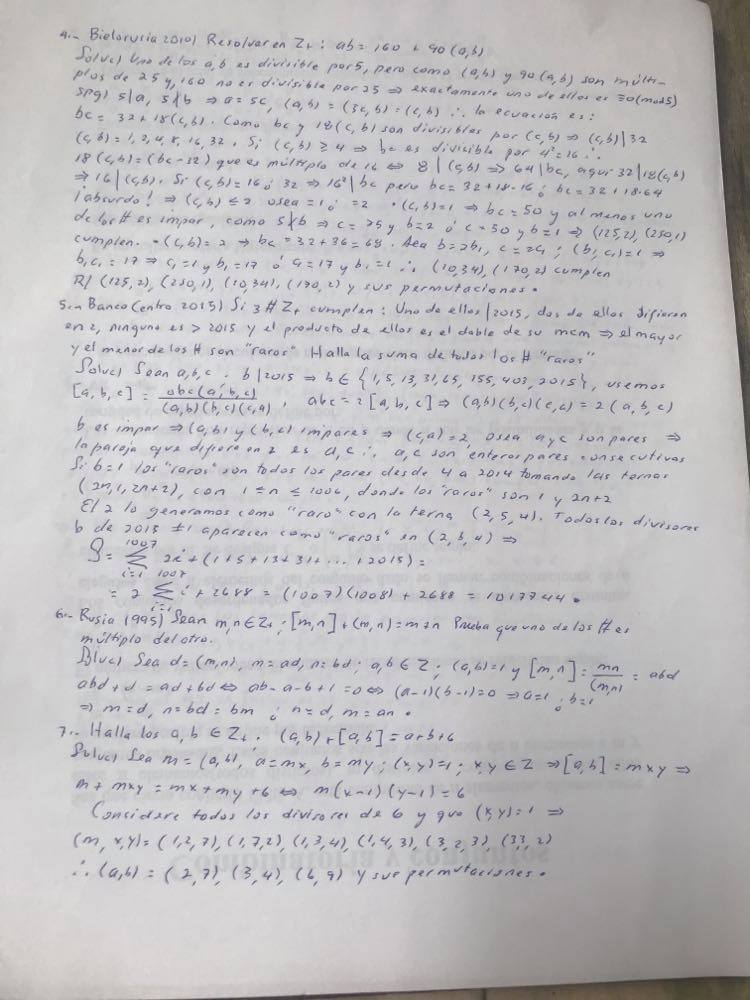 4.- Bielorusia 2010) Resolver en Z+: ab = 160 + 90 (a,b)
Soluc) Uno de los a,b es divisible por 5, pero como (a,b) y 90(a,b) son múlti-
plos de 25 y, 160 no es divisible por 25 ⇒ exactamente uno de ellos es ≡0(mod5)
spg) 5|a, 5∤b ⇒ a = 5c, (a,b) = (5c,b) = (c,b) ∴ la ecuación es:
bc = 32 + 18(c,b). Como bc y 18(c,b) son divisibles por (c,b) ⇒ (c,b)|32
(c,b) = 1,2,4,8,16,32. Si (c,b) ≥ 4 ⇒ bc es divisible por 4²=16 ∴
18(c,b) = (bc-32) que es múltiplo de 16 ⇔ 8|(c,b) ⇒ 64|bc, aquí 32|18(c,b)
⇒ 16|(c,b). Si (c,b) = 16 ó 32 ⇒ 16²|bc pero bc = 32+18·16 ó bc = 32+18·64
¡absurdo! ⇒ (c,b) ≤ 2 osea = 1 ó = 2 • (c,b)=1 ⇒ bc = 50 y al menos uno
de los # es impar, como 5∤b ⇒ c = 25 y b = 2 ó c = 50 y b = 1 ⇒ (125,2), (250,1)
cumplen. • (c,b) = 2 ⇒ bc = 32+36 = 68. Sea b = 2b₁, c = 2c₁; (b₁,c₁) = 1 ⇒
b₁c₁ = 17 ⇒ c₁ = 1 y b₁ = 17 ó c₁ = 17 y b₁ = 1 ∴ (10,34), (170,2) cumplen
R/ (125,2), (250,1), (10,34), (170,2) y sus permutaciones.
5.- Banco Centro 2015) Si 3 # Z+ cumplen: Uno de ellos | 2015, dos de ellos difieren
en 2, ninguno es > 2015 y el producto de ellos es el doble de su mcm ⇒ el mayor
y el menor de los # son "raros" Halla la suma de todos los # "raros"
Soluc) Sean a,b,c. b|2015 ⇒ b ∈ {1,5,13,31,65,155,403,2015}, usemos
[a,b,c] = abc(a,b,c)/(a,b)(b,c)(c,a), abc = 2[a,b,c] ⇒ (a,b)(b,c)(c,a) = 2(a,b,c)
b es impar ⇒ (a,b) y (b,c) impares ⇒ (c,a) = 2, osea a y c son pares ⇒
la pareja que difiere en 2 es a,c ∴ a,c son enteros pares consecutivos
Si b=1 los "raros" son todos los pares desde 4 a 2014 tomando las ternas
(2n,1,2n+2), con 1 ≤ n ≤ 1006, donde los "raros" son 1 y 2n+2
El 2 lo generamos como "raro" con la terna (2,5,4). Todos los divisores
b de 2015 ≠1 aparecen como "raros" en (2,b,4) ⇒
S = ∑_{i=1}^{1007} 2i + (1+5+13+31+...+2015) =
= 2 ∑_{i=1}^{1007} i + 2688 = (1007)(1008) + 2688 = 1017744.
6.- Rusia 1995) Sean m,n ∈ Z+; [m,n]+(m,n) = m+n Prueba que uno de los # es
múltiplo del otro.
Soluc) Sea d = (m,n), m = ad, n = bd; a,b ∈ Z; (a,b)=1 y [m,n] = mn/(m,n) = abd
abd+d = ad+bd ⇔ ab-a-b+1 = 0 ⇔ (a-1)(b-1) = 0 ⇒ a=1 ó b=1
⇒ m = d, n = bd = bm ó n = d, m = an.
7.- Halla los a,b ∈ Z+: (a,b)+[a,b] = a+b+6
Soluc) Sea m = (a,b), a = mx, b = my; (x,y)=1; x,y ∈ Z ⇒ [a,b] = mxy ⇒
m + mxy = mx + my + 6 ⇔ m(x-1)(y-1) = 6
Considere todos los divisores de 6 y que (x,y)=1 ⇒
(m,x,y) = (1,2,7), (1,7,2), (1,3,4), (1,4,3), (3,2,3), (3,3,2)
∴ (a,b) = (2,7), (3,4), (6,9) y sus permutaciones.
Combinatoria y conjuntos